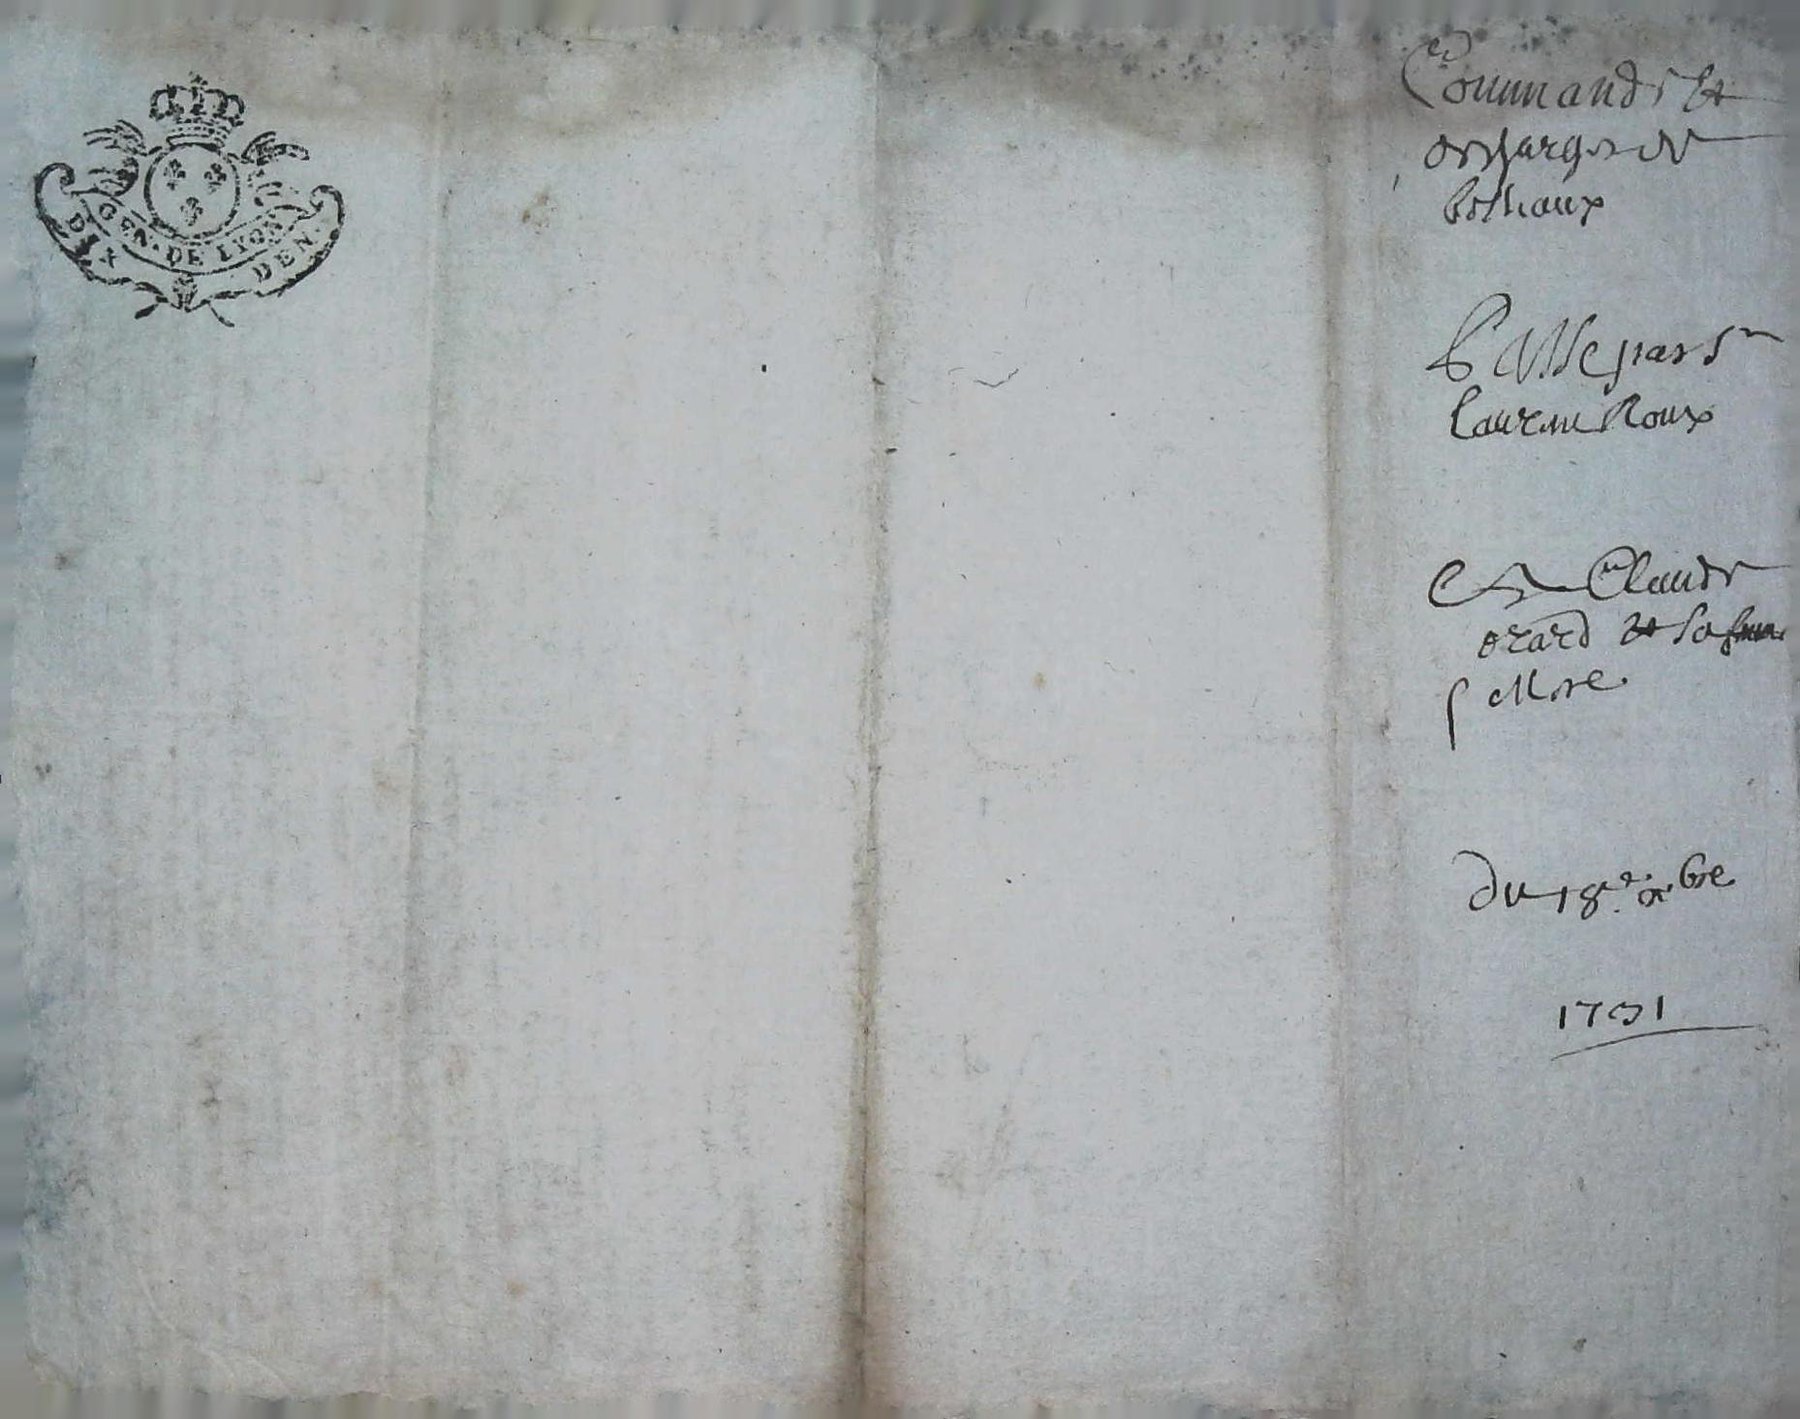 GEN. DE LYON
DIX DEN.
Commande et
descharge de
bestiaux
Passe par Sr
Laurent Roux
Claude
erard et sa femme
du 18e xbre
1731